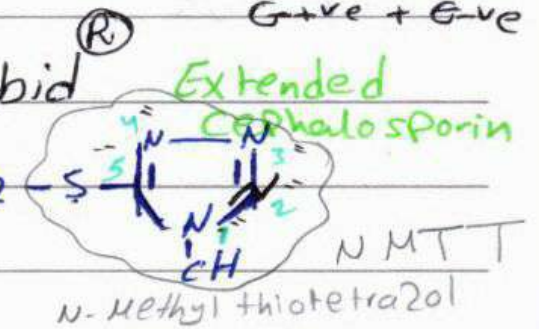 G+ve + G-ve
bid ®
Extended
Cephalosporin
4 N N
3
S 5
2
N
1
CH
NMTT
N-Methyl thiotetrazol